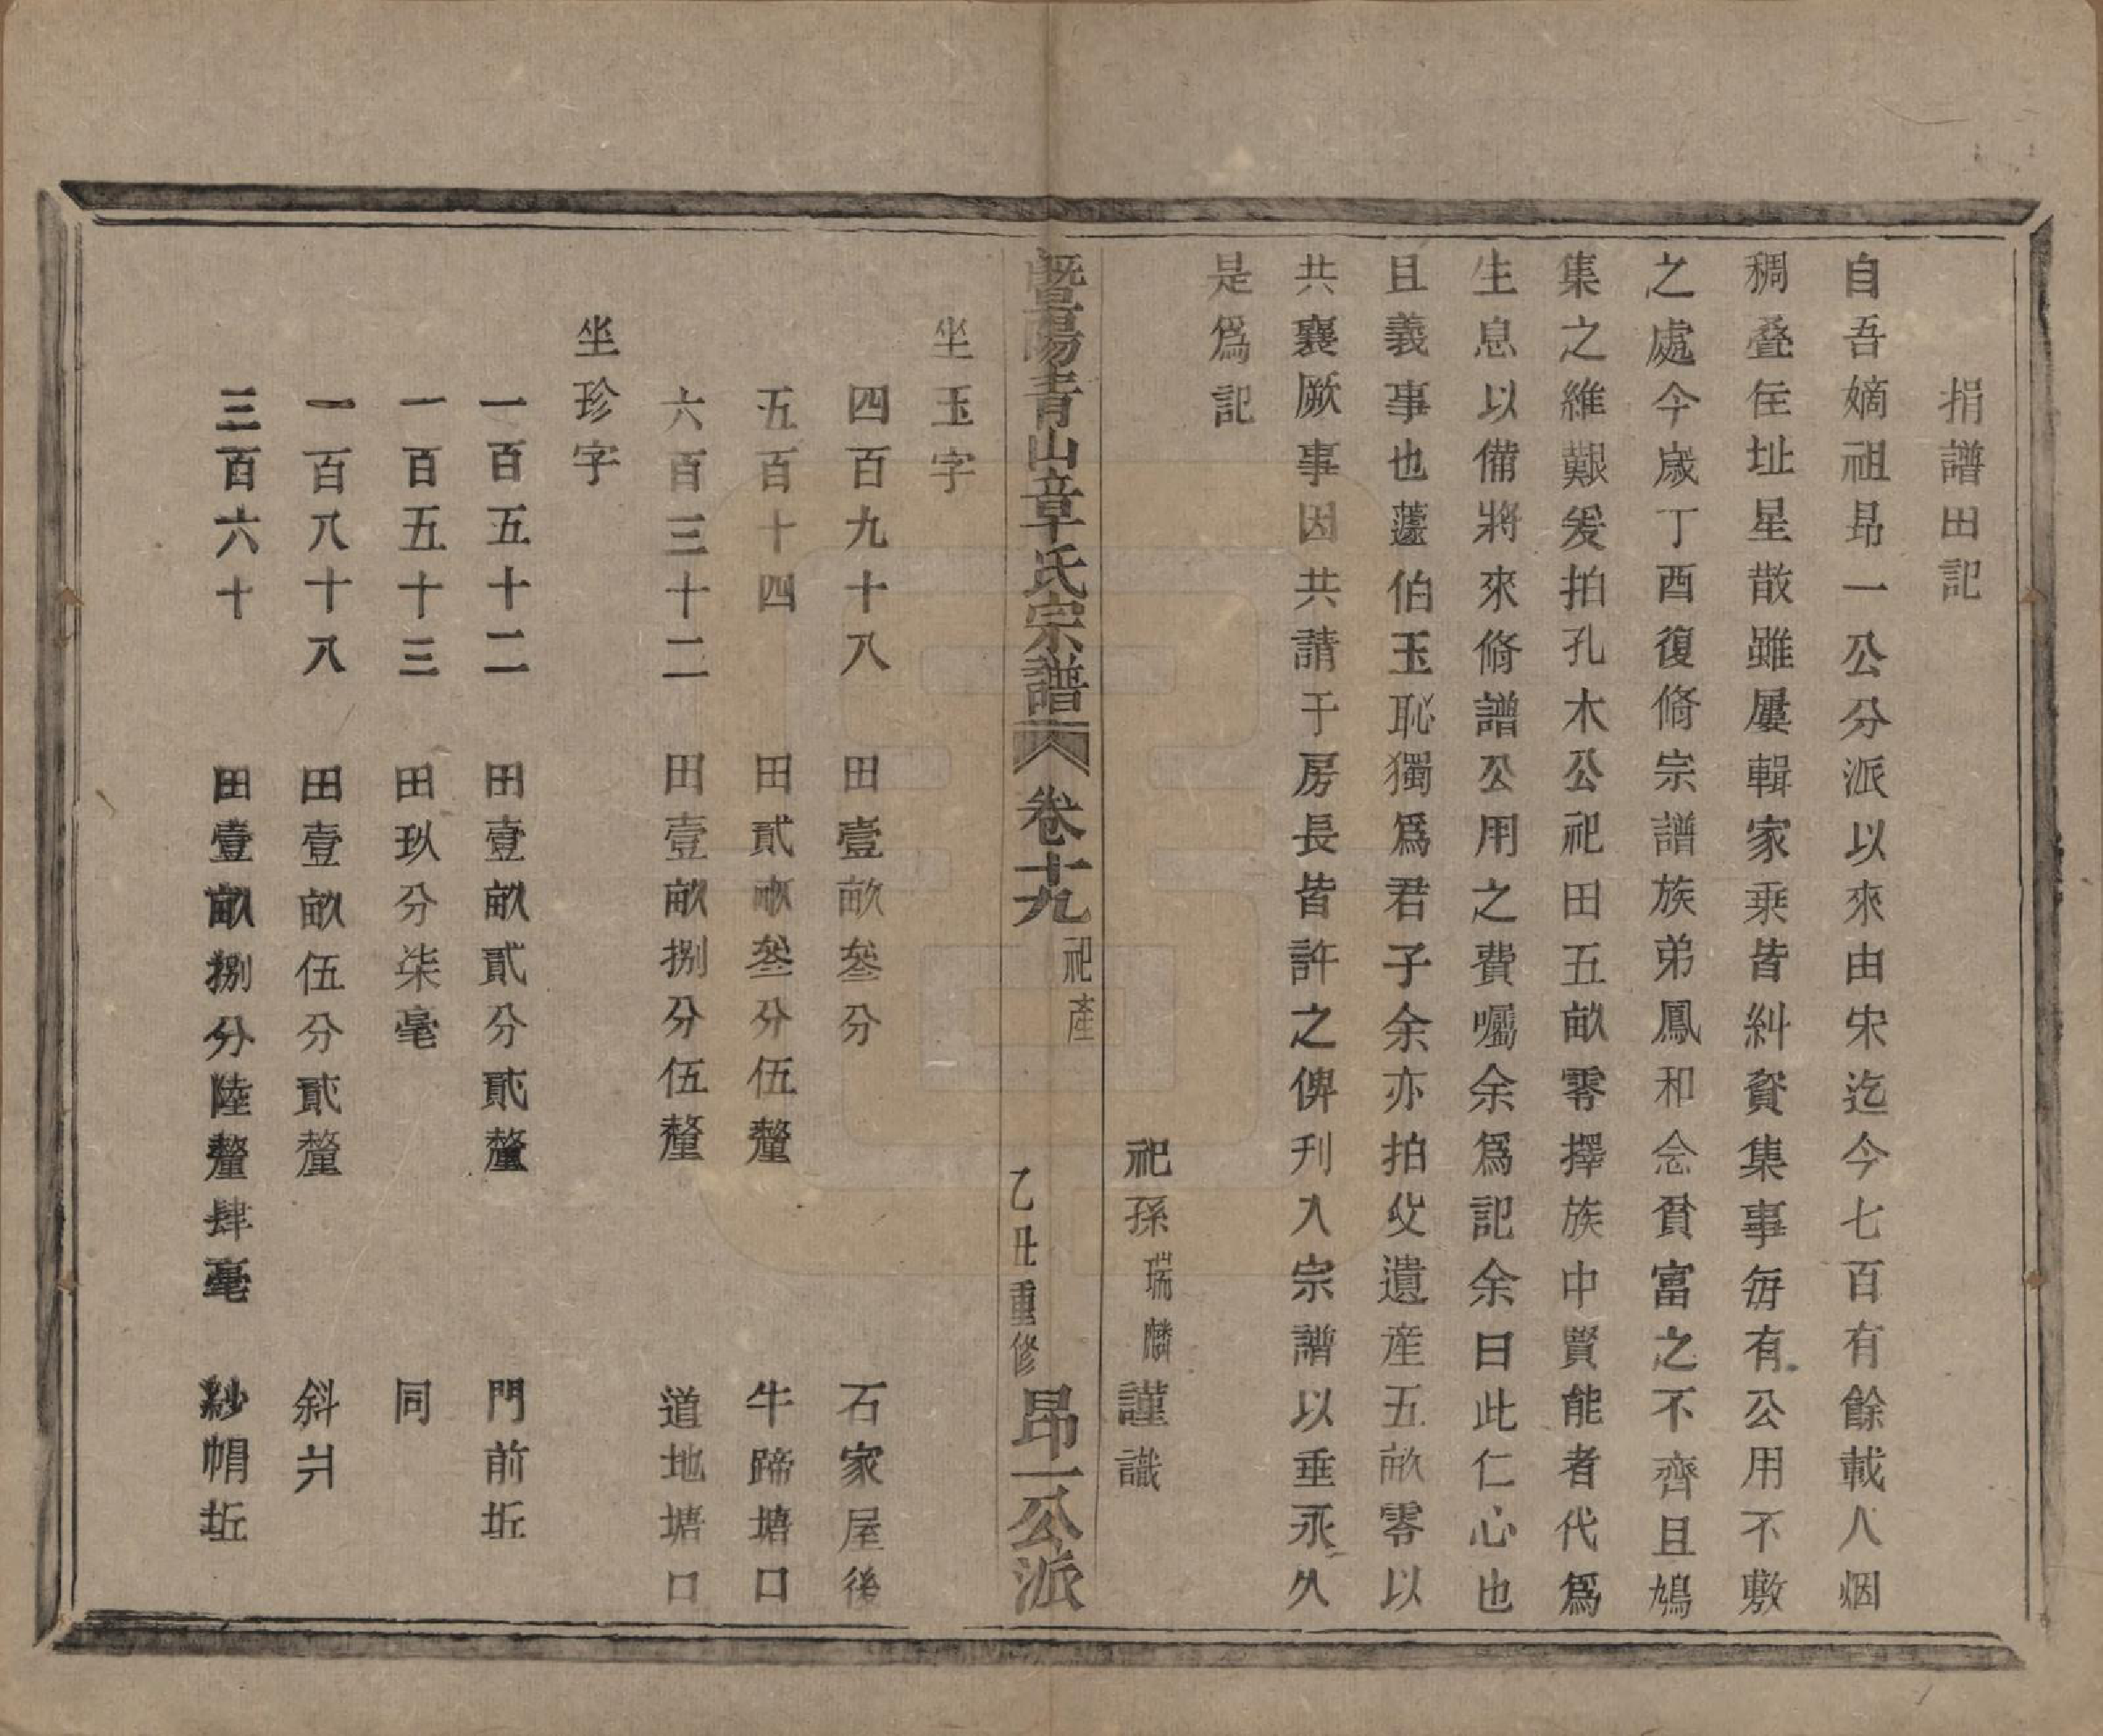 捐譜田記
自吾嫡祖昂一公分派以來由宋迄今七百有餘載人烟
稠叠住址星散雖屢輯家乗皆糾資集事毎有公用不敷
之處今歲丁酉復脩宗譜族弟鳳和念貧富之不齊且鳩
集之維艱爰拍孔木公祀田五畝零擇族中賢能者代爲
生息以備將來脩譜公用之費囑余爲記余曰此仁心也
且義事也蘧伯玉恥獨爲君子余亦拍父遺産五畝零以
共襄厥事因共請于房長皆許之俾刋入宗譜以垂永久
是爲記
祀孫瑞麟謹識
暨陽青山章氏宗譜 卷十九 祀産 乙丑重修 昂一公派
坐玉字
四百九十八 田壹畝叁分 石家屋後
五百十四 田貳畝叁分伍釐 牛蹄塘口
六百三十二 田壹畝捌分伍釐 道地塘口
坐珍字
一百五十二 田壹畝貳分貳釐 門前坵
一百五十三 田玖分柒毫 同
一百八十八 田壹畝伍分貳釐 斜爿
三百六十 田壹畝捌分陸釐肆毫 紗帽坵